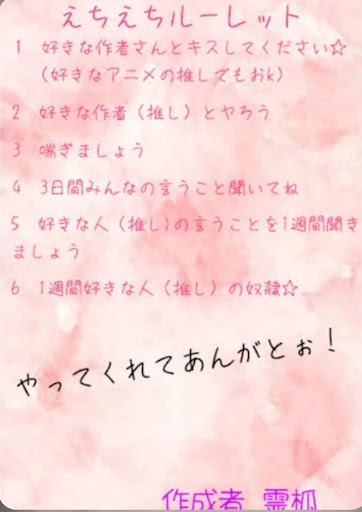 えちえちルーレット
1 好きな作者さんとキスしてください☆
(好きなアニメの推しでもおk)
2 好きな作者（推し）とヤろう
3 喘ぎましょう
4 3日間みんなの言うこと聞いてね
5 好きな人（推し)の言うことを1週間聞き
ましょう
6 1週間好きな人（推し）の奴隷☆
やってくれてあんがとぉ！
作成者 霊狐